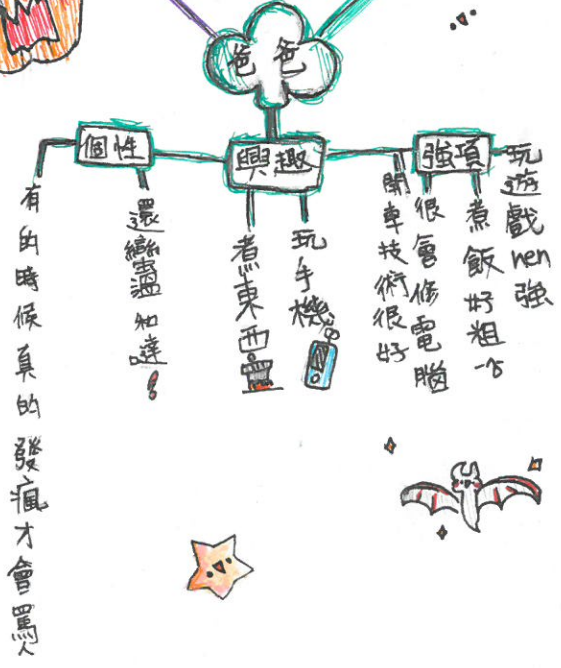 爸爸
個性
有的時候真的發瘋才會罵人
還蠻溫和噠!
興趣
煮東西
玩手機
強項
開車技術很好
很會修電腦
煮飯好粗
玩遊戲hen強